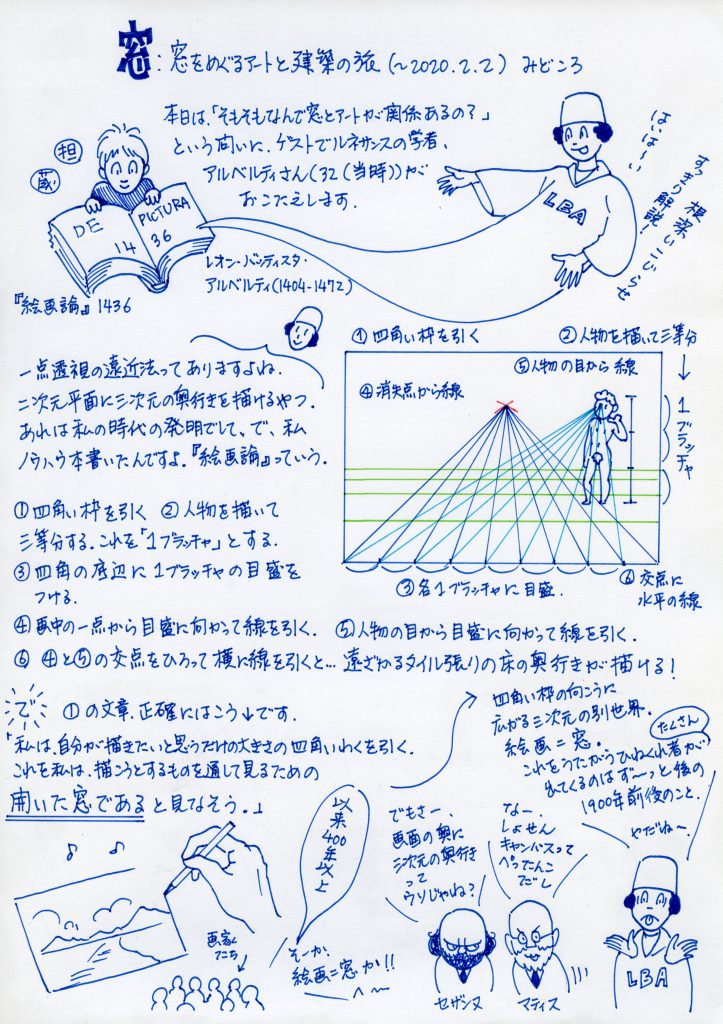 窓:窓をめぐるアートと建築の旅(~2020.2.2) みどころ
本日は、「そもそもなんで窓とアートが関係あるの?」
という問いに、ゲストでルネサンスの学者、
アルベルティさん(32(当時))が
おこたえします。
はいはーい
根深いこじらせ
すっきり解説!
担
蔵
DE
PICTURA
14
36
LBA
『絵画論』1436
レオン・バッティスタ・
アルベルティ(1404-1472)
一点透視の遠近法ってありますよね。
二次元平面に三次元の奥行きを描けるやつ。
あれは私の時代の発明でして、で、私
ノウハウ本書いたんですよ。『絵画論』っていう。
①四角い枠を引く ②人物を描いて
三等分する。これを「1ブラッチャ」とする。
③四角の底辺に1ブラッチャの目盛を
つける。
④画中の一点から目盛に向かって線を引く. ⑤人物の目から目盛に向かって線を引く.
⑥ ④と⑤の交点をひろって横に線を引くと…遠ざかるタイル張りの床の奥行きが描ける!
①四角い枠を引く
②人物を描いて三等分
⑤人物の目から線
④消失点から線
1ブラッチャ
③各1ブラッチャに目盛.
⑥交点に
水平の線
で
①の文章、正確にはこう↓です.
「私は、自分が描きたいと思うだけの大きさの四角いわくを引く.
これを私は、描こうとするものを通して見るための
開いた窓であると見なそう。」
四角い枠の向こうに
広がる三次元の別世界.
絵画=窓。
これをうたがうひねくれ者が
たくさん
出てくるのはず~っと後の
1900年前後のこと.
♪ ♪
画家
たち
以来
400年以上
そーか、
絵画=窓か!!
へ~
でもさー、
画面の奥に
三次元の奥行き
って
ウソじゃね?
なー.
しょせん
キャンバスって
ぺったんこ
だし
やだね~
セザンヌ
マティス
LBA